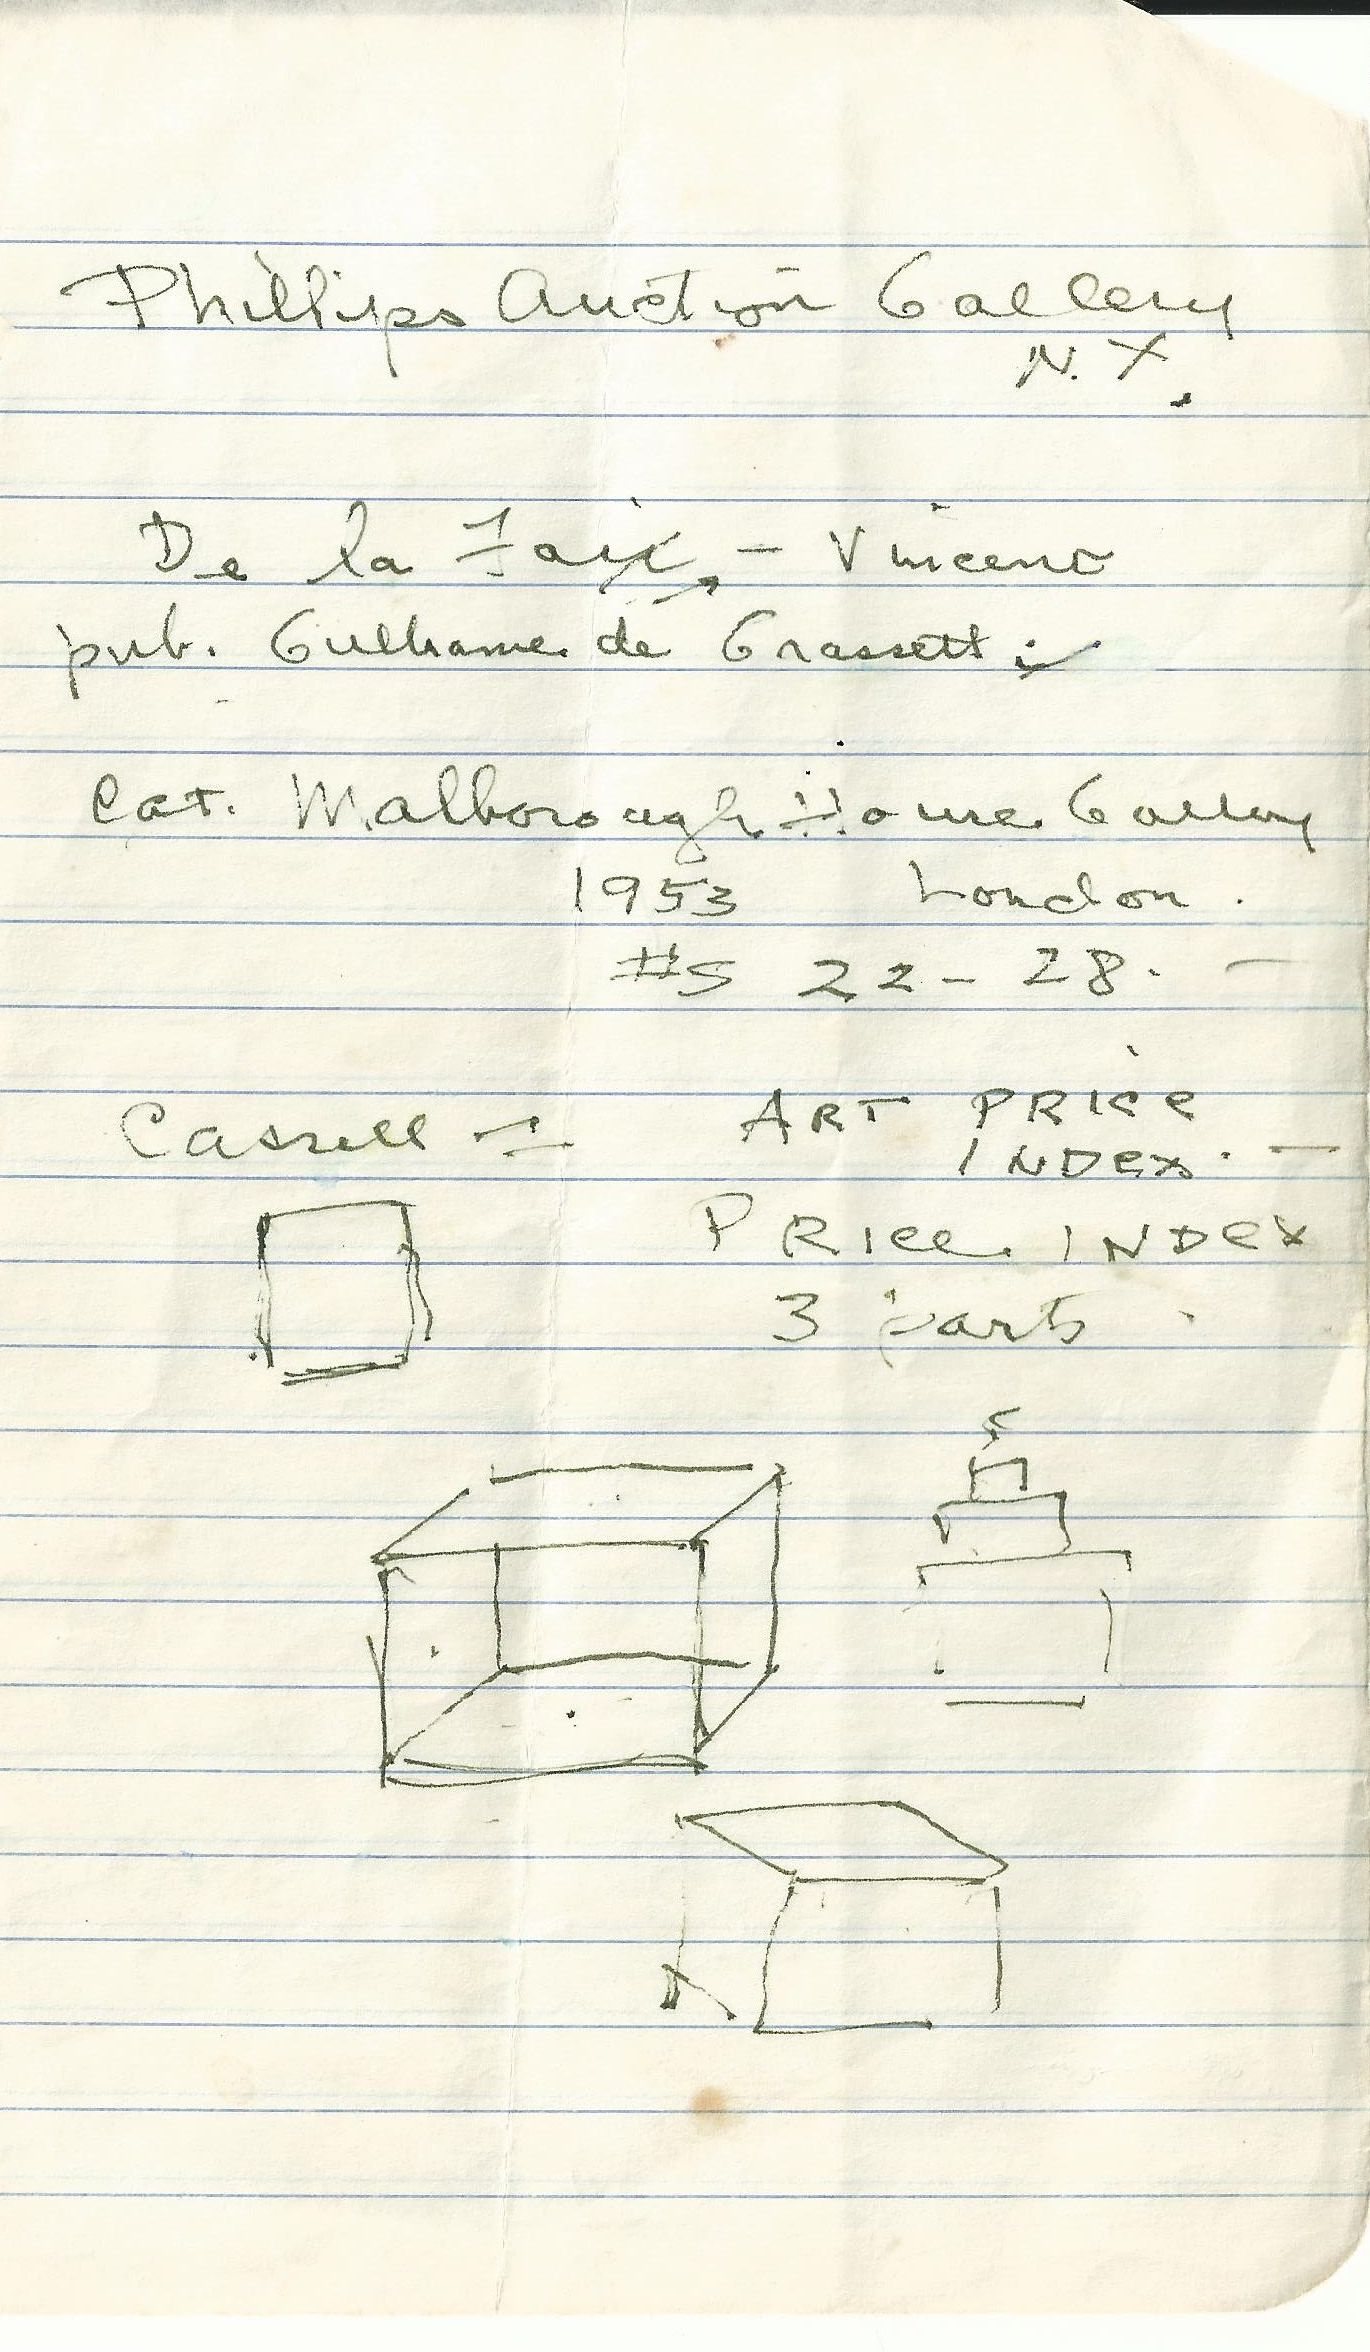 Phillips Auction Gallery
N.Y.
De la Faix, - Vincent
pub. Gulhame de Grassett
Cat. Malborough House Gallery
1953 London.
#S 22-28. -
Cassell - ART PRICE
INDEX. -
PRICE INDEX
3 parts